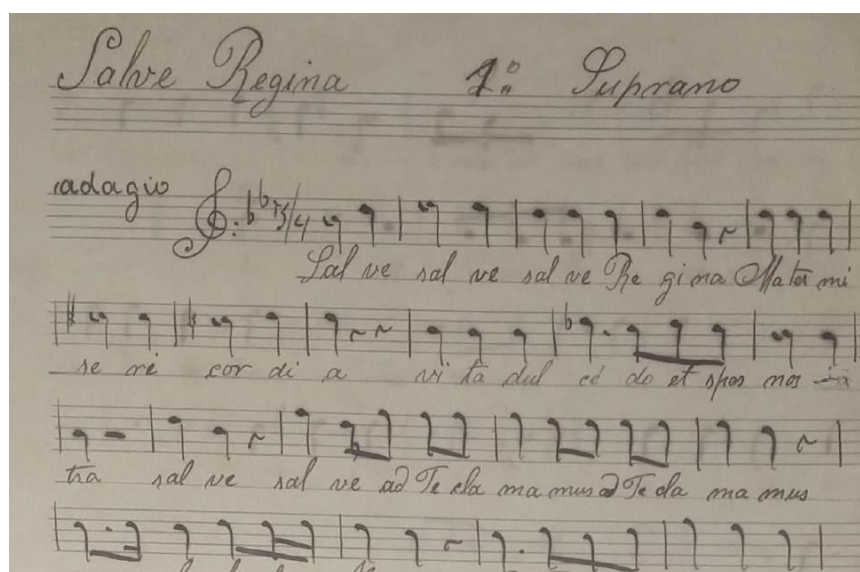 Salve Regina 1º Suprano
adagio
Sal ve sal ve sal ve Re gi na Mater mi
se ri cor di a vi ta dul cé do et spes nos
tra sal ve sal ve ad Te cla ma mus ad Te cla ma mus